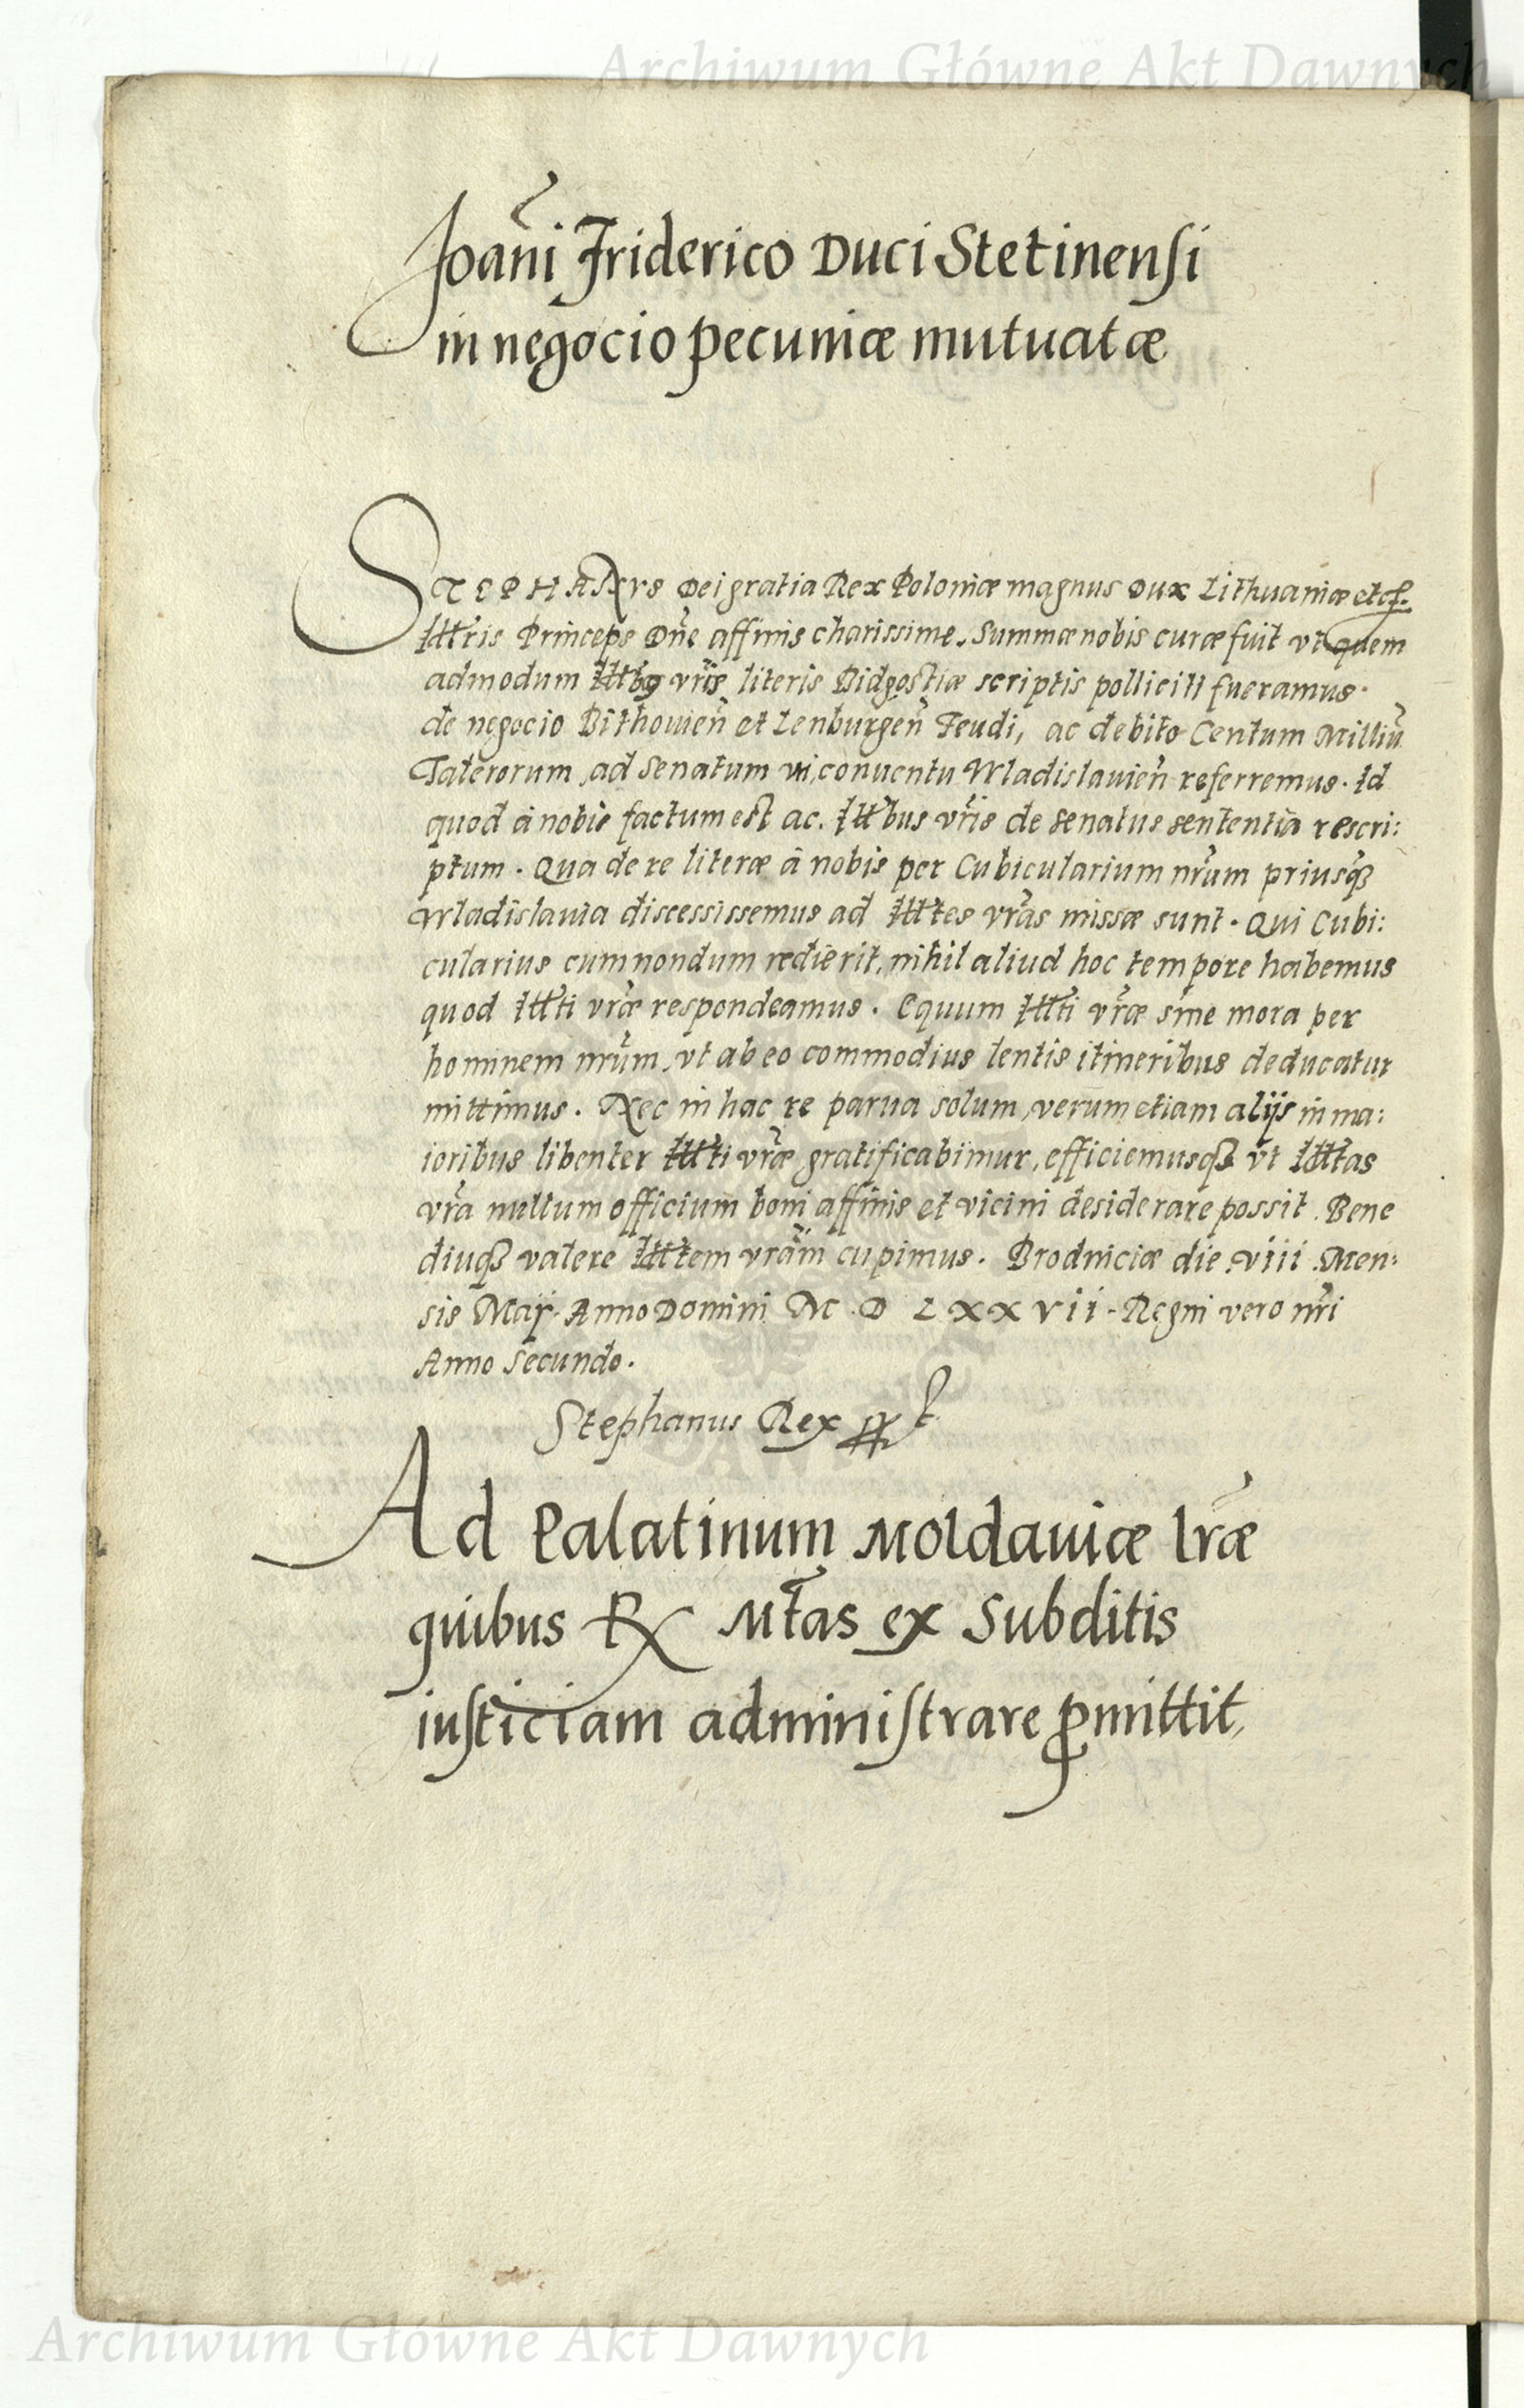 Archiwum Główne Akt Dawnych
Joañi Friderico Duci Stetinensi
in negocio pecuniæ mutuatæ
STEPHANVS Dei gratia Rex Poloniæ magnus Dux Lithuaniæ etc.
Illris Princeps Dñe affinis charissime. Summæ nobis curæ fuit vt quem
admodum Illbꝯ vris literis Bidgostiæ scriptis polliciti fueramus.
de negocio Bithouień et Lenburgeń Feudi, ac debito Centum Milliũ
Talerorum, ad Senatum in conuentu Wladislauień referremus. Id
quod à nobis factum est ac. Illbus vris de senatus sententia rescri:
ptum. Qua de re literæ à nobis per Cubicularium nrum priusqꝫ
Wladislauia discessissemus ad Illtes vras missæ sunt. Qui Cubi:
cularius cum nondum redierit, nihil aliud hoc tempore habemus
quod Illti vræ respondeamus. Equum Illti vræ sine mora per
hominem nrum, vt ab eo commodius lentis itineribus deducatur
mittimus. Nec in hac re parua solum, verum etiam alijs in ma:
ioribus libenter Illti vræ gratificabimur, efficiemusqꝫ vt Illtas
vra nullum officium boni affinis et vicini desiderare possit. Bene
diuqꝫ valere Illtem vram cupimus. Brodniciæ die viii Men:
sis Maij. Anno Domini M. D LXXVII. Regni vero nri
Anno Secundo.
Stephanus Rex
Ad Palatinum Moldauiæ lræ
quibus R Mtas ex Subditis
iusticiam administrare ꝓmittit
Archiwum Główne Akt Dawnych